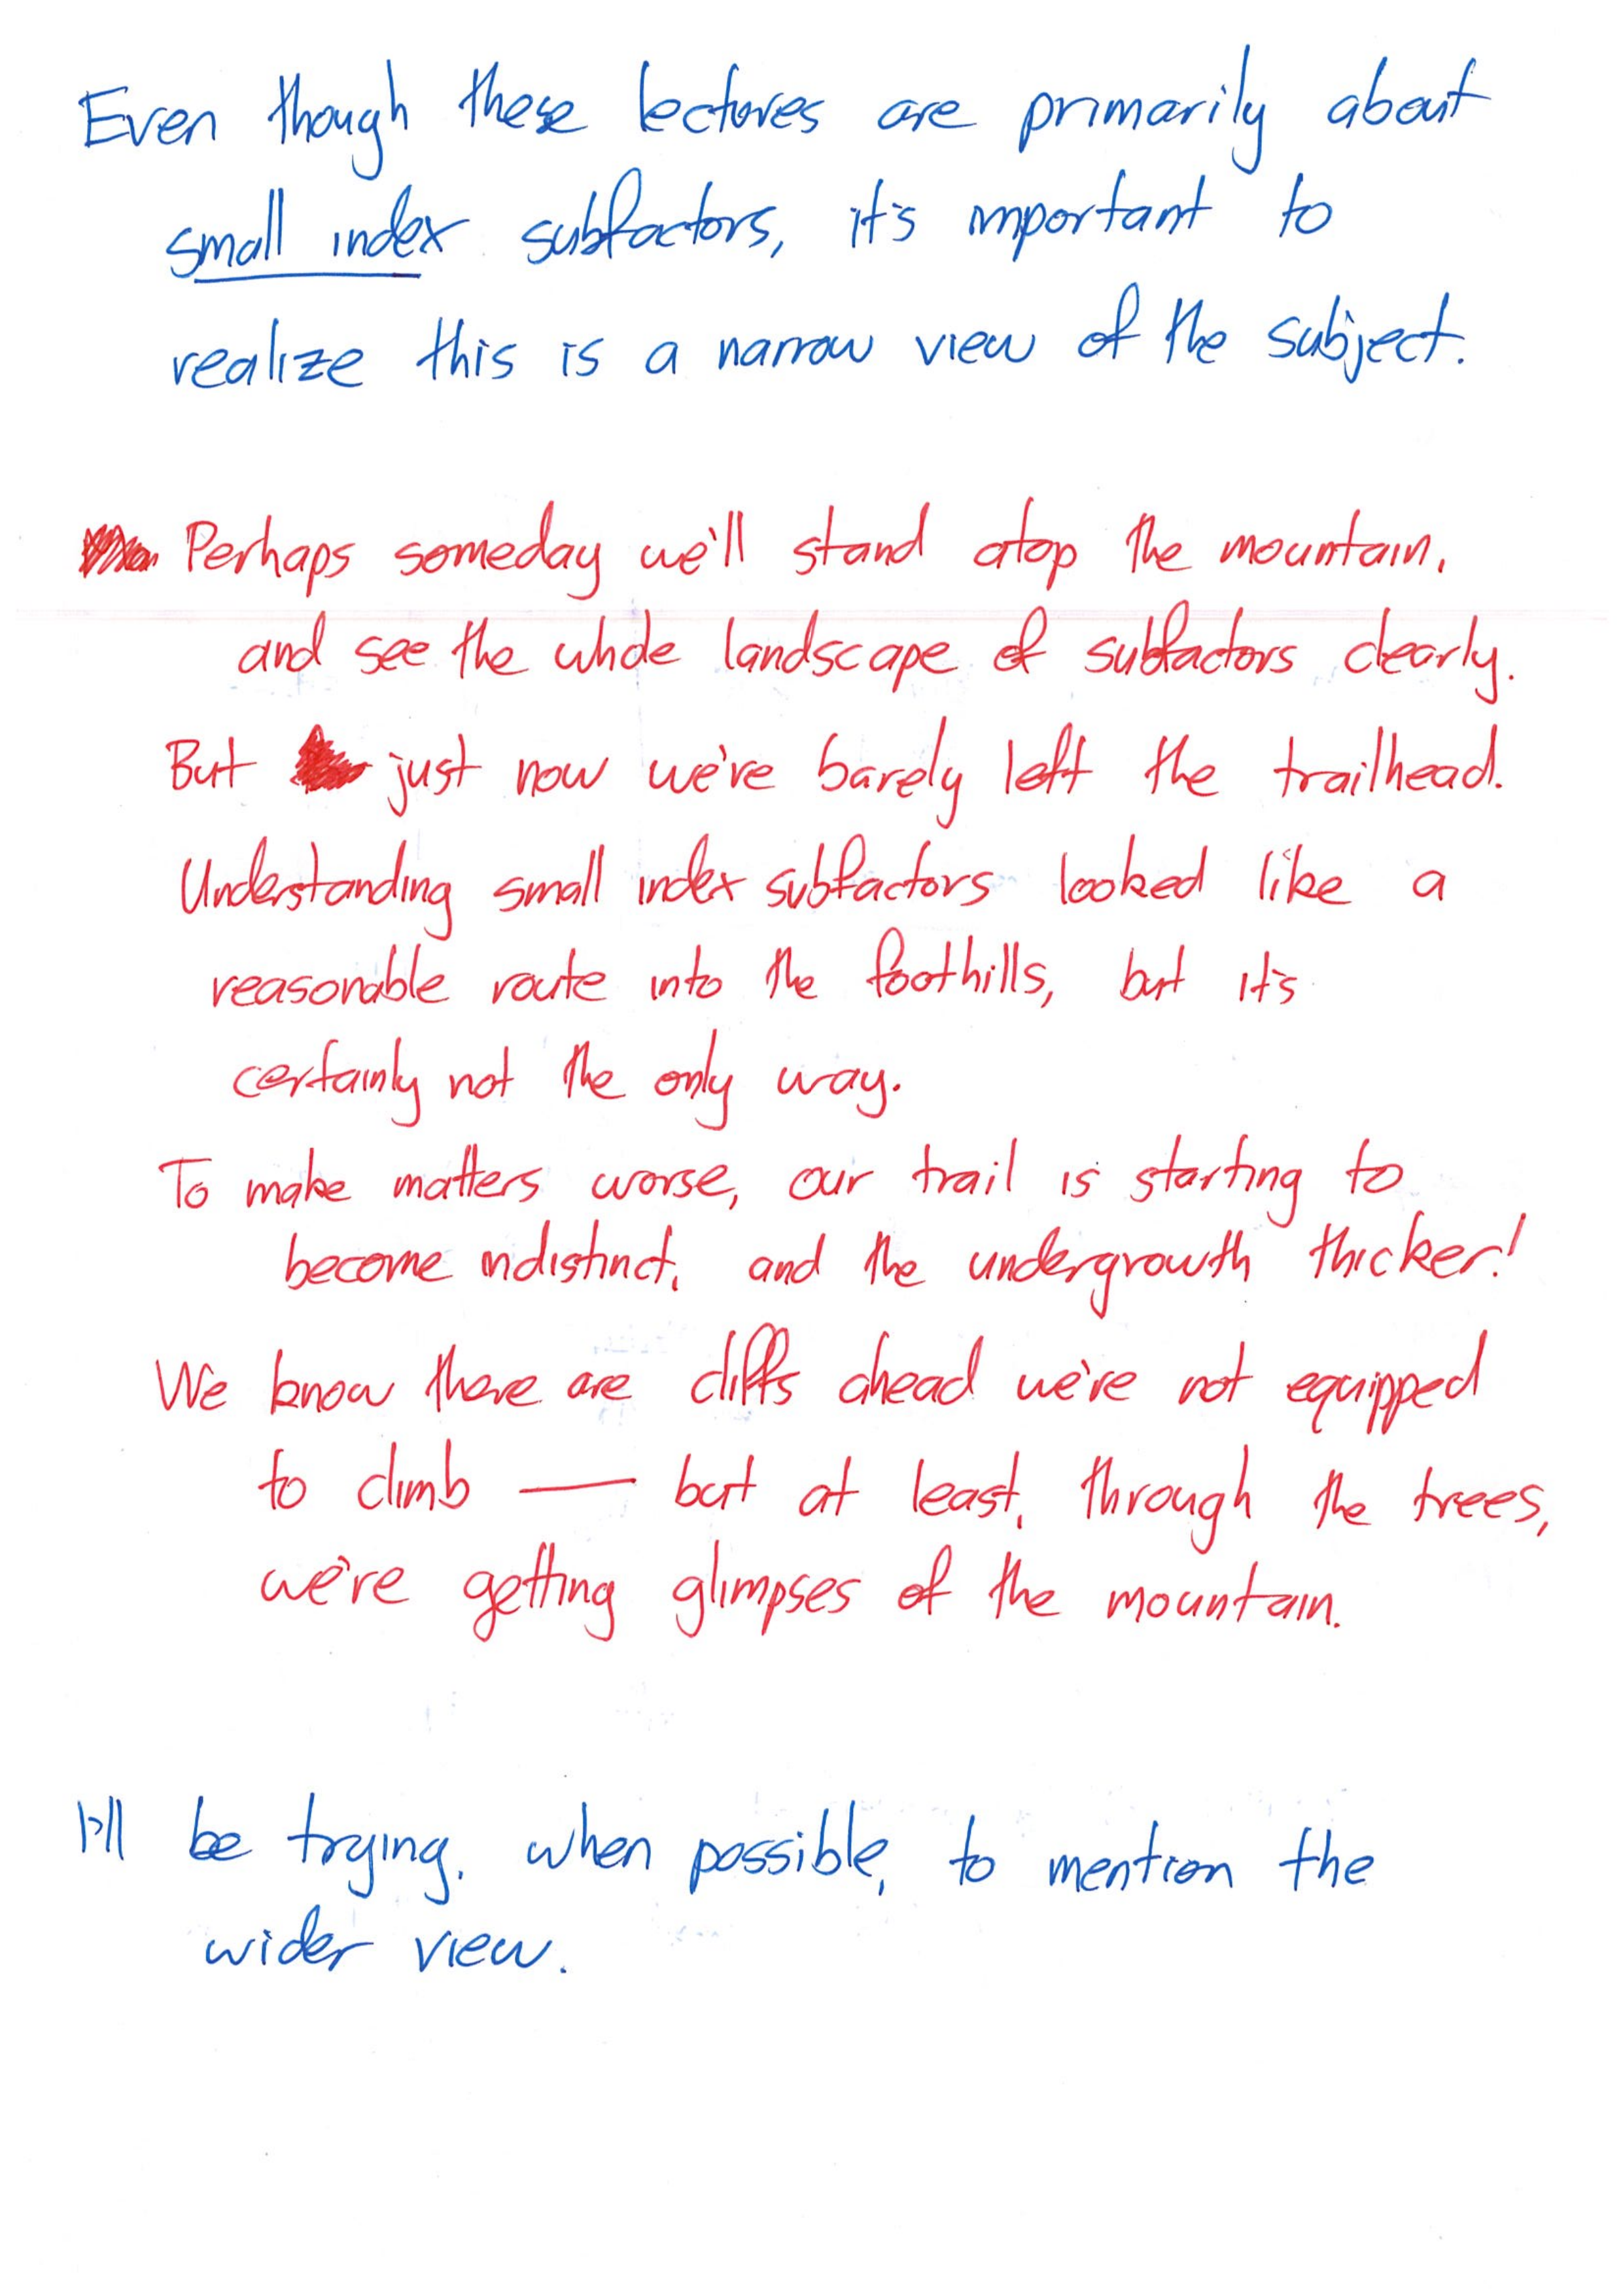 Even though these lectures are primarily about
small index subfactors, it's important to
realize this is a narrow view of the subject.
Perhaps someday we'll stand atop the mountain,
and see the whole landscape of subfactors clearly.
But just now we're barely left the trailhead.
Understanding small index subfactors looked like a
reasonable route into the foothills, but it's
certainly not the only way.
To make matters worse, our trail is starting to
become indistinct, and the undergrowth thicker!
We know there are cliffs ahead we're not equipped
to climb — but at least, through the trees,
we're getting glimpses of the mountain.
I'll be trying, when possible, to mention the
wider view.